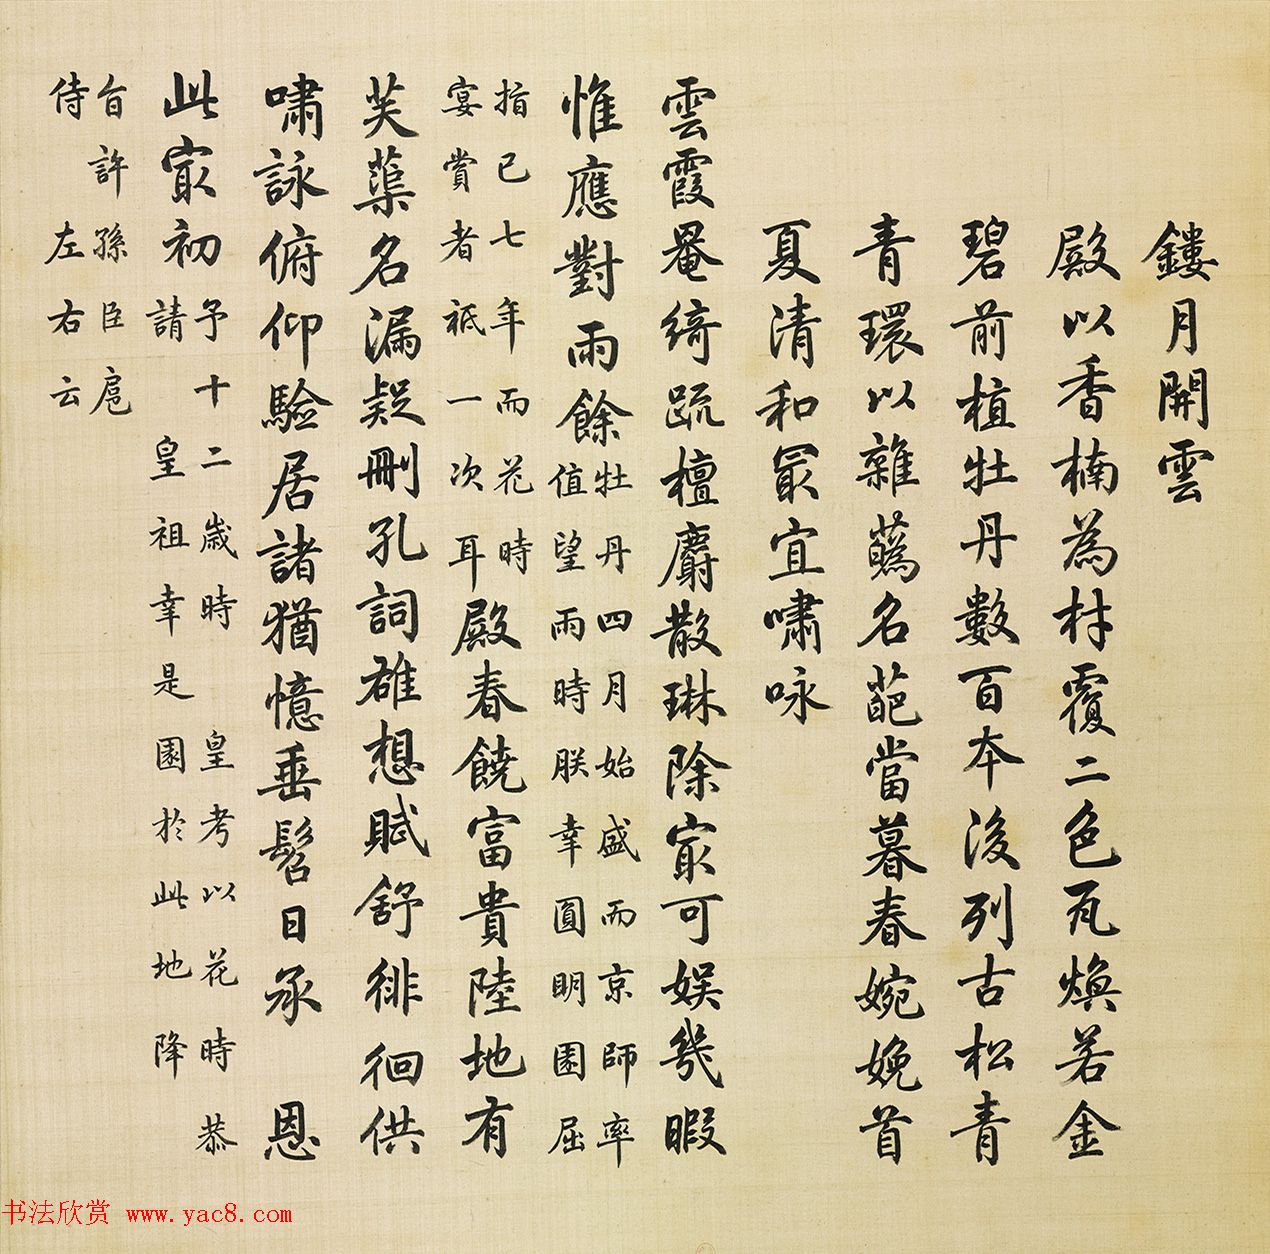 鏤月開雲
殿以香楠為材覆二色瓦煥若金
碧前植牡丹數百本後列古松青
青環以雜蘤名葩當暮春婉娩首
夏清和最宜嘯咏
雲霞罨綺疏檀麝散琳除㝡可娛幾暇
惟應對雨餘
牡丹四月始盛而京師率
值望雨時朕幸圓明園屈
指已七年而花時
宴賞者祗一次耳
殿春饒富貴陸地有
芙蕖名漏疑刪孔詞雄想賦舒徘徊供
嘯詠俯仰驗居諸猶憶垂髫日承 恩
此㝡初
予十二歲時 皇考以花時 恭
請 皇祖幸是園於此地降
旨許孫臣扈
侍左右云
书法欣赏 www.yac8.com